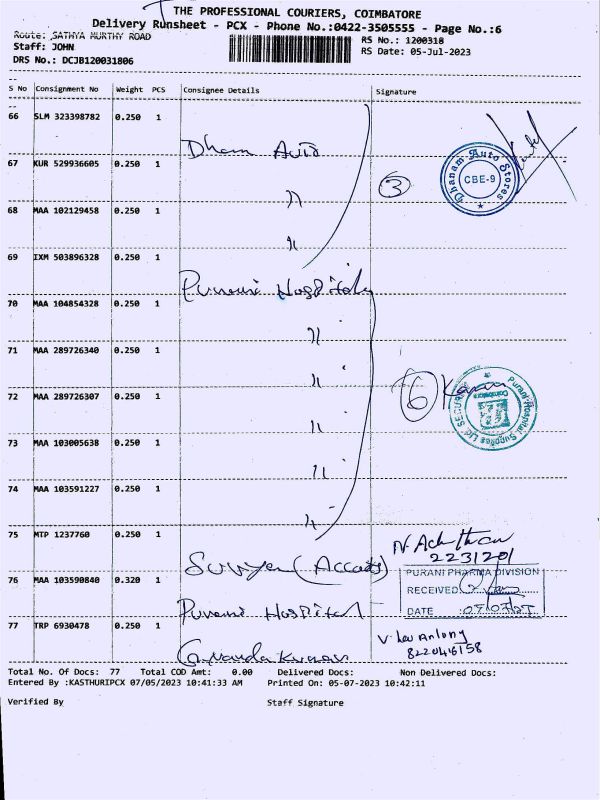 THE PROFESSIONAL COURIERS, COIMBATORE
Delivery Runsheet - PCX - Phone No.:0422-3505555 - Page No.:6
Route: SATHYA MURTHY ROAD
RS No.: 1200318
Staff: JOHN
RS Date: 05-Jul-2023
DRS No.: DCJB120031806
S No Consignment No Weight PCS Consignee Details Signature
66 SLM 323398782 0.250 1
Dhanam Auto
67 KUR 529936605 0.250 1
"
3
Dhanam Auto Stores
CBE-9
68 MAA 102129458 0.250 1
"
69 IXM 503896328 0.250 1
Purani Hospital
70 MAA 104854328 0.250 1
"
71 MAA 289726340 0.250 1
"
72 MAA 289726307 0.250 1
"
6
Purani Hospital Supplies Ltd. SECURITY
Coimbatore
73 MAA 103005638 0.250 1
"
74 MAA 103591227 0.250 1
"
75 MTP 1237760 0.250 1
Surya (Access)
2231201
76 MAA 103590840 0.320 1
Purani Hospital
PURANI PHARMA DIVISION
RECEIVED
DATE
77 TRP 6930478 0.250 1
V. Leo Antony
8220416158
Total No. Of Docs: 77 Total COD Amt: 0.00 Delivered Docs: Non Delivered Docs:
Entered By :KASTHURIPCX 07/05/2023 10:41:33 AM Printed On: 05-07-2023 10:42:11
Verified By Staff Signature